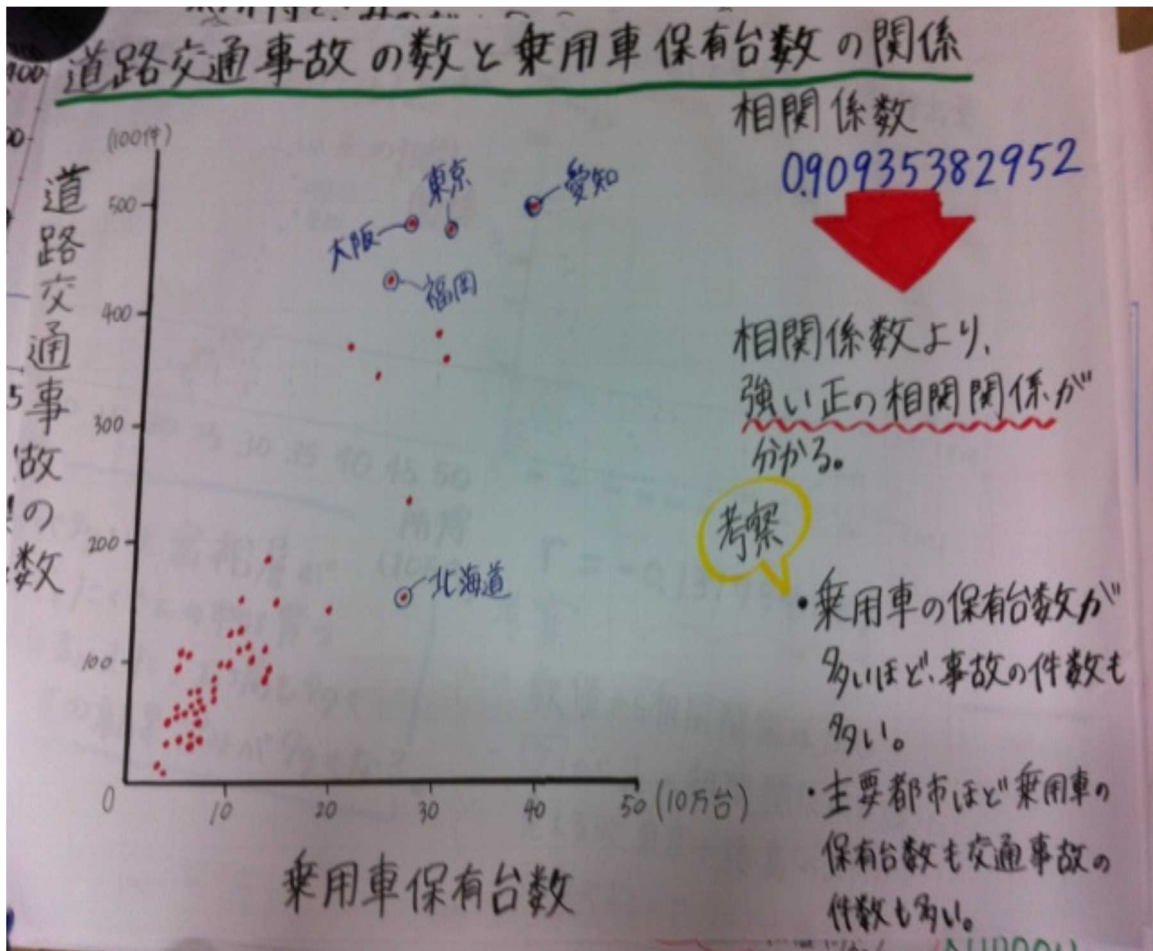 道路交通事故の数と乗用車保有台数の関係
相関係数
0.909353382952
相関係数より、
強い正の相関関係が
分かる。
考察
・乗用車の保有台数が
多いほど、事故の件数も
多い。
・主要都市ほど乗用車の
保有台数も交通事故の
件数も多い。
(100件)
道路交通事故の数
500
400
300
200
100
0
10
20
30
40
50
(10万台)
乗用車保有台数
東京
愛知
大阪
福岡
北海道